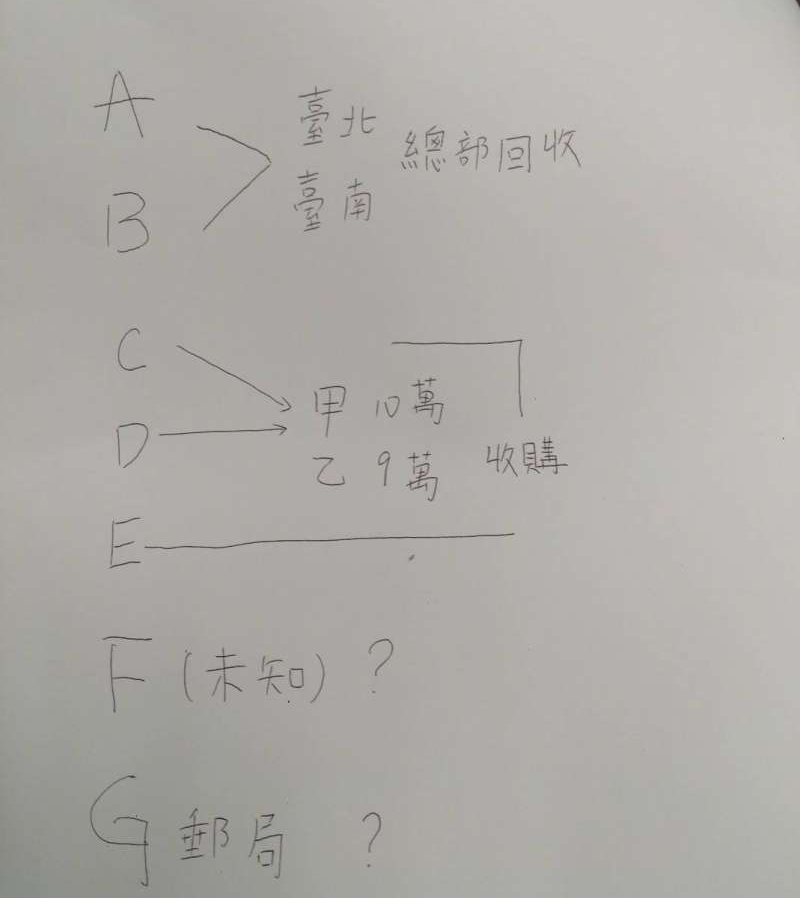 A
臺北
總部回收
B
臺南
C
甲 10萬
D
乙 9萬
收購
E
F (未知) ?
G 郵局 ?